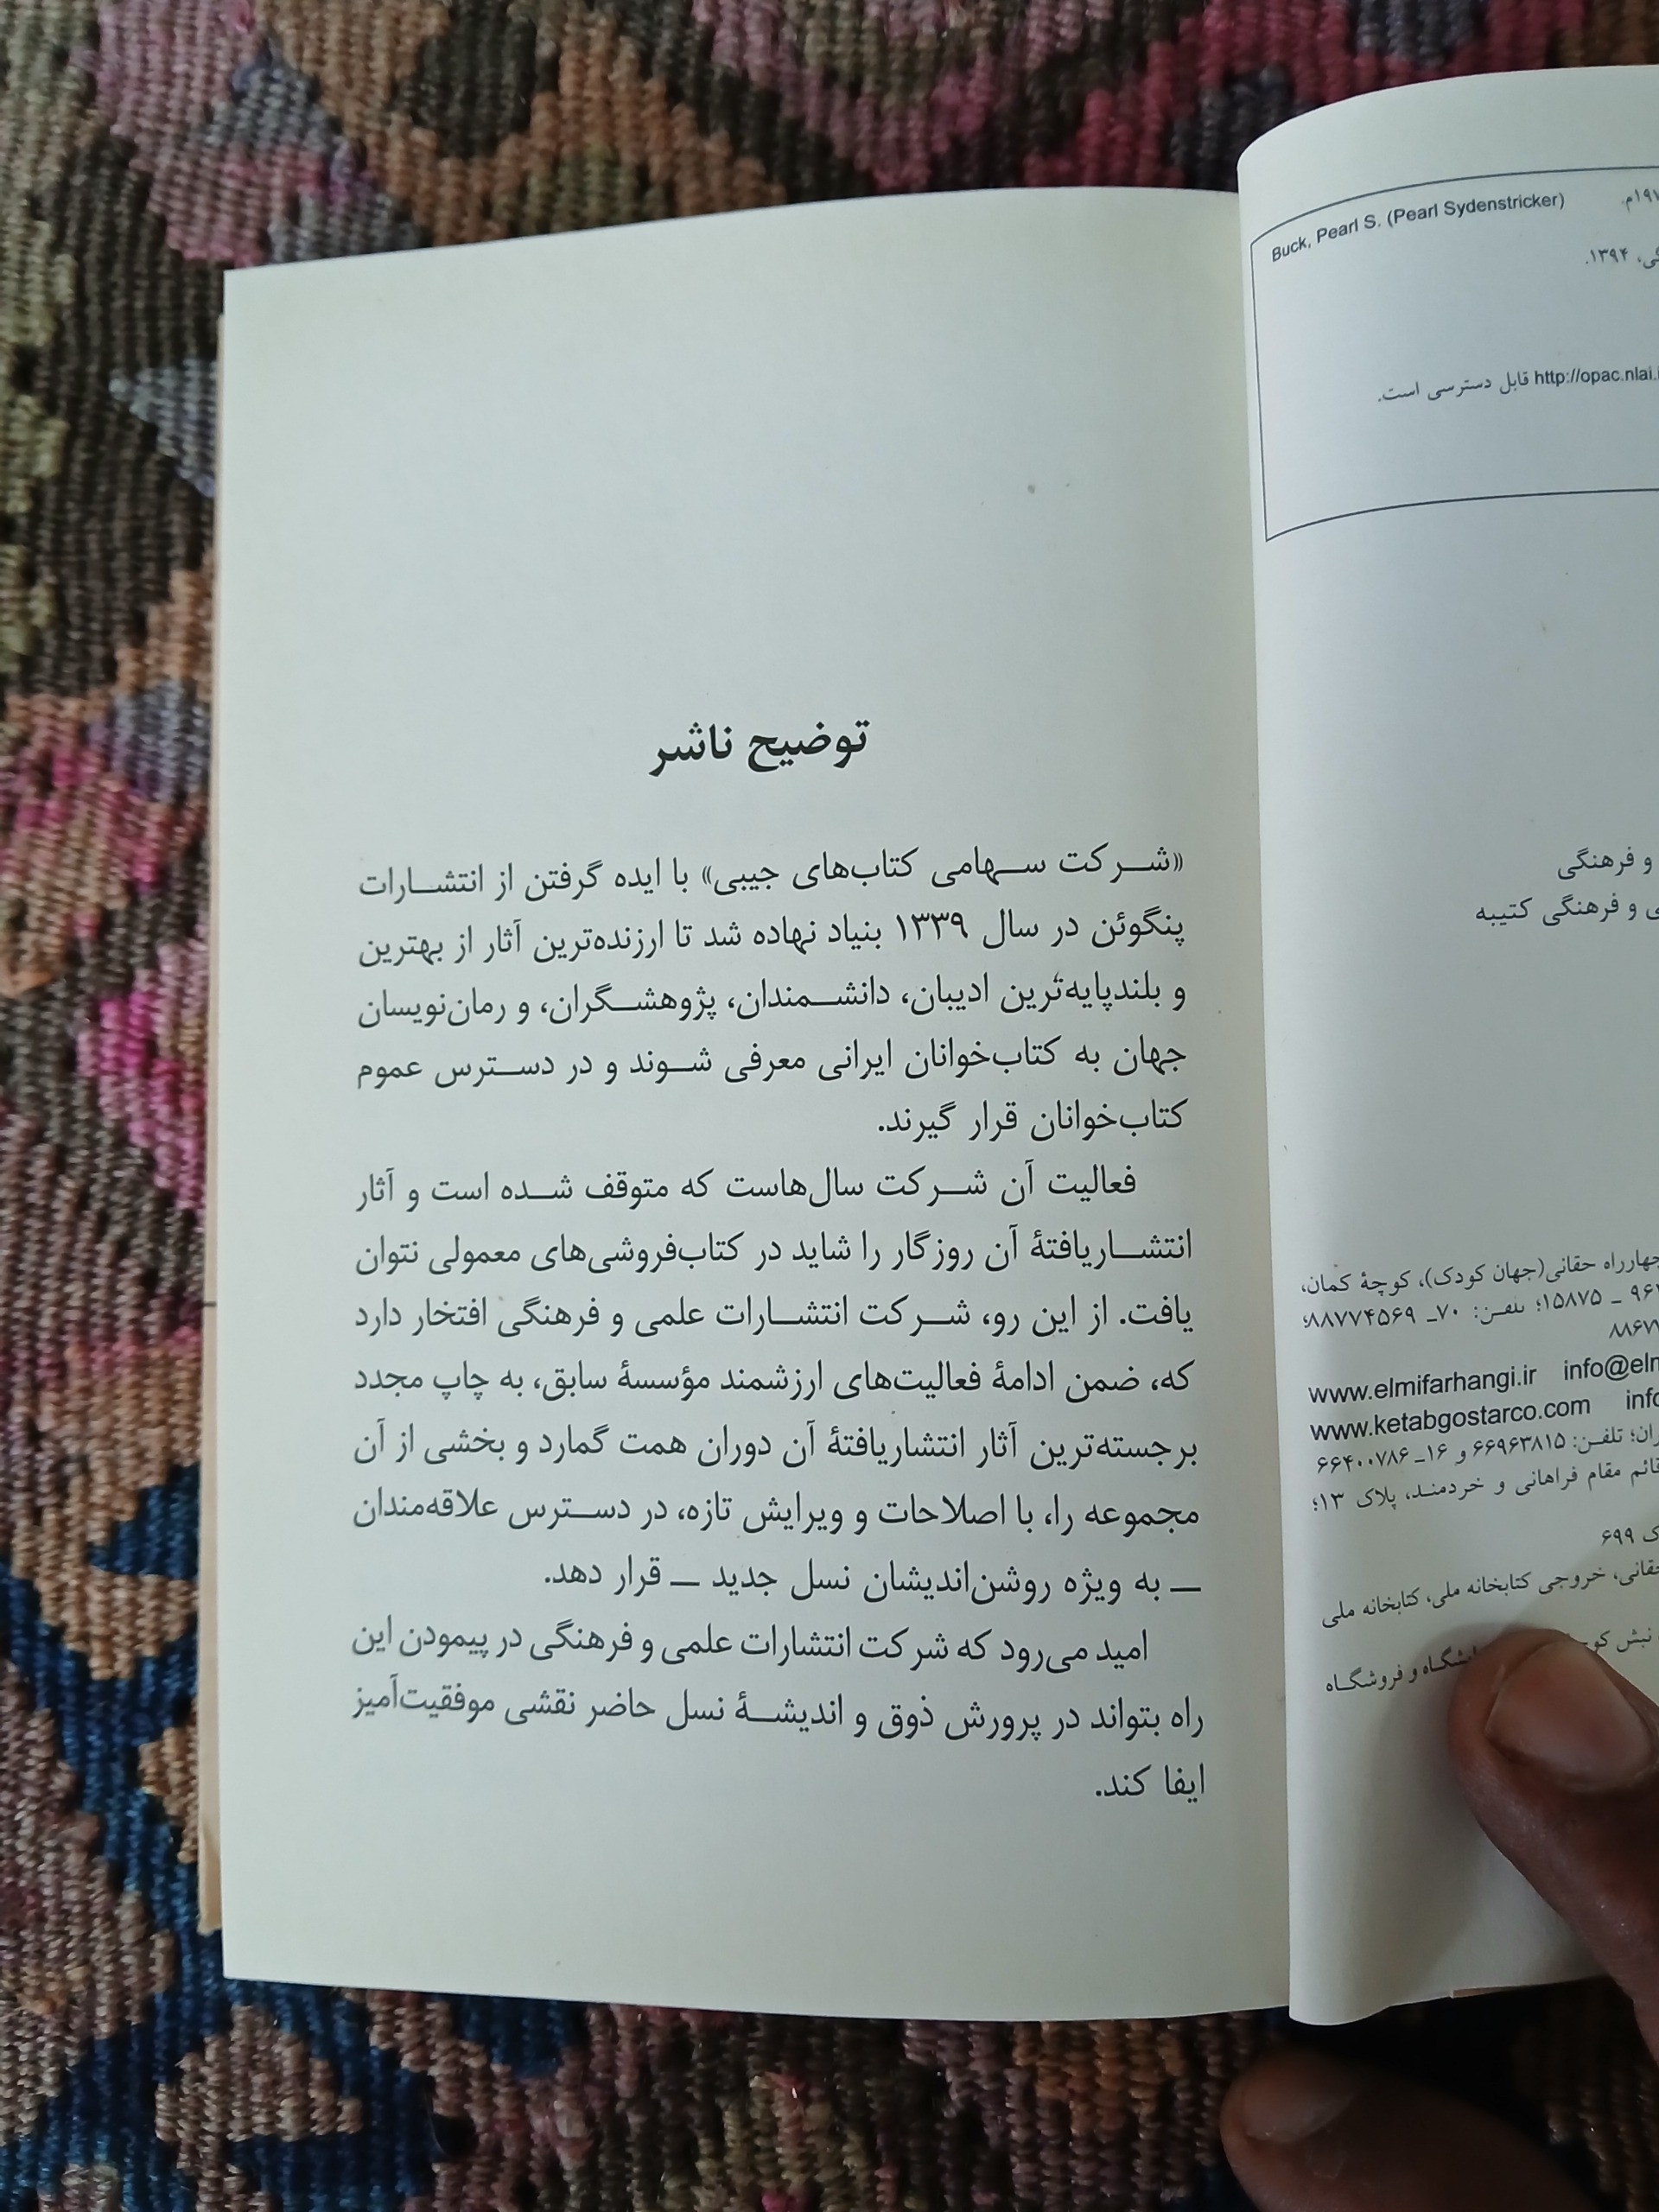 Buck, Pearl S. (Pearl Sydenstricker)
۱۳۹۴.
http://opac.nlai قابل دسترسی است.
و فرهنگی
و فرهنگی کتیبه
چهارراه حقانی(جهان کودک)، کوچهٔ کمان،
۱۵۸۷۵؛ تلفن: ۷۰ـ ۸۸۷۷۴۵۶۹؛
www.elmifarhangi.ir
www.ketabgostarco.com
تلفن: ۶۶۹۶۳۸۱۵ و ۱۶ـ ۶۶۴۰۰۷۸۶
قائم مقام فراهانی و خردمند، پلاک ۱۳؛
۶۹۹
حقانی، خروجی کتابخانه ملی، کتابخانه ملی
نبش و فروشگاه
توضیح ناشر
«شرکت سهامی کتاب‌های جیبی» با ایده گرفتن از انتشارات
پنگوئن در سال ۱۳۳۹ بنیاد نهاده شد تا ارزنده‌ترین آثار از بهترین
و بلندپایه‌ترین ادیبان، دانشمندان، پژوهشگران، و رمان‌نویسان
جهان به کتاب‌خوانان ایرانی معرفی شوند و در دسترس عموم
کتاب‌خوانان قرار گیرند.
فعالیت آن شرکت سال‌هاست که متوقف شده است و آثار
انتشاریافتهٔ آن روزگار را شاید در کتاب‌فروشی‌های معمولی نتوان
یافت. از این رو، شرکت انتشارات علمی و فرهنگی افتخار دارد
که، ضمن ادامهٔ فعالیت‌های ارزشمند مؤسسهٔ سابق، به چاپ مجدد
برجسته‌ترین آثار انتشاریافتهٔ آن دوران همت گمارد و بخشی از آن
مجموعه را، با اصلاحات و ویرایش تازه، در دسترس علاقه‌مندان
ــ به ویژه روشن‌اندیشان نسل جدید ــ قرار دهد.
امید می‌رود که شرکت انتشارات علمی و فرهنگی در پیمودن این
راه بتواند در پرورش ذوق و اندیشهٔ نسل حاضر نقشی موفقیت‌آمیز
ایفا کند.